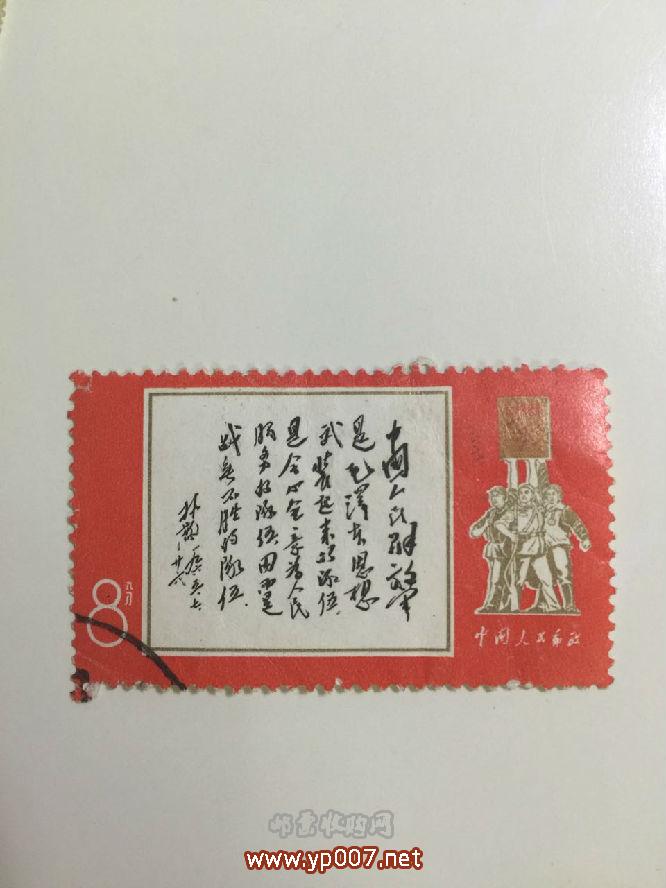 中国人民解放军
是毛澤东思想
武装起来的队伍,
是全心全意为人民
服务的队伍,因而是
战无不胜的队伍.
林彪
一九六五.七
廿六
8分
中国人民邮政
邮票收购网
www.yp007.net